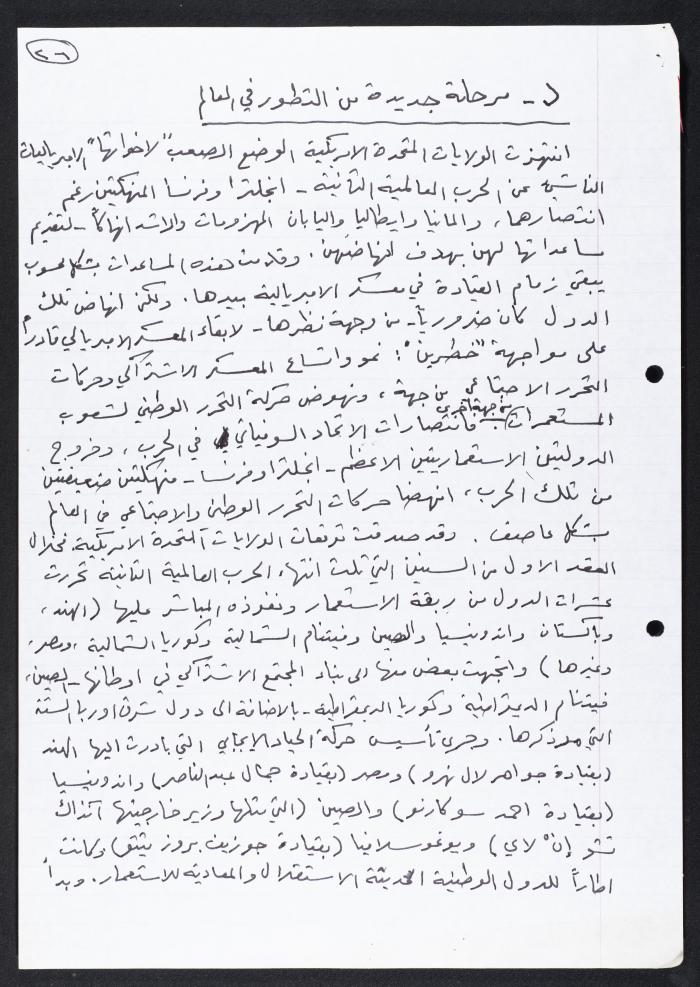 ٢٦
د - مرحلة جديدة من التطور في العالم
انتهزت الولايات المتحدة الامريكية الوضع الصعب "لاخواتها" الامبرياليات
الناشئ عن الحرب العالمية الثانية - انجلترا وفرنسا المنهكتين رغم
انتصارهما، والمانيا وايطاليا واليابان المهزومات والاشد انهاكاً - لتقديم
مساعداتها لهن بهدف انهاضهن. وقدمت هذه المساعدات بشكل محسوب
يبقي زمام القيادة في معسكر الامبريالية بيدها. ولكن انهاض تلك
الدول كان ضرورياً - من وجهة نظرها - لابقاء المعسكر الامبريالي قادراً
على مواجهة "خطرين": نمو واتساع المعسكر الاشتراكي وحركات
التحرر الاجتماعي من جهة، ونهوض حركة التحرر الوطني لشعوب
المستعمرات من جهة اخرى. فانتصارات الاتحاد السوفياتي في الحرب، وخروج
الدولتين الاستعماريتين الاعظم - انجلترا وفرنسا - منهكتين ضعيفتين
من تلك الحرب، انهضا حركات التحرر الوطني والاجتماعي في العالم
بشكل عاصف. وقد صدقت توقعات الولايات المتحدة الامريكية، فخلال
العقد الاول من السنين التي تلت انتهاء الحرب العالمية الثانية تحررت
عشرات الدول من ربقة الاستعمار ونفوذه المباشر عليها (الهند،
وباكستان واندونيسيا والصين وفيتنام الشمالية وكوريا الشمالية، ومصر،
وغيرها) واتجهت بعض منها الى بناء المجتمع الاشتراكي في اوطانها - الصين،
فيتنام الديمقراطية وكوريا الديمقراطية - بالاضافة الى دول شرق اوربا الستة
التي مر ذكرها. وجرى تأسيس حركة الحياد الايجابي التي بادرت اليها الهند
(بقيادة جواهر لال نهرو) ومصر (بقيادة جمال عبد الناصر) واندونيسيا
(بقيادة احمد سوكارنو) والصين (التي مثلها وزير خارجيتها آنذاك
تشو إن لاي) ويوغوسلافيا (بقيادة جوزيف بروز تيتو) وكانت
اطاراً للدول الوطنية الحديثة الاستقلال والمعادية للاستعمار. وبدأ